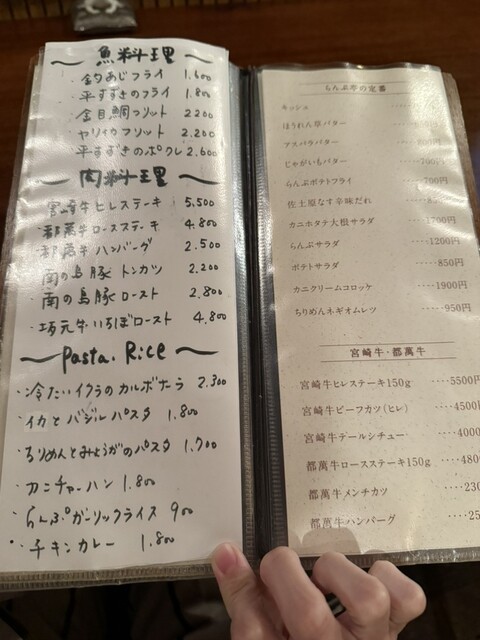 魚料理
・釣あじフライ 1.600
・平すずきのフライ 1.800
・金目鯛フリット 2200
・ヤリイカフリット 2.200
・平すずきのポワレ 2.600
肉料理
・宮崎牛ヒレステーキ 5.500
・都萬牛ロースステーキ 4.800
・都萬牛ハンバーグ 2.500
・南の島豚 トンカツ 2.200
・南の島豚 ロースト 2.800
・坂元牛いちぼロースト 4.800
Pasta. Rice
・冷たいイクラのカルボナーラ 2.300
・イカとバジルパスタ 1.800
・ちりめんとみょうがのパスタ 1.700
・カニチャーハン 1.800
・らんぷガーリックライス 900
・チキンカレー 1.800
らんぷ亭の定番
キッシュ
ほうれん草バター
アスパラバター
じゃがいもバター
らんぷポテトフライ 700円
佐土原なす辛味だれ
カニホタテ大根サラダ 1700円
らんぷサラダ 1200円
ポテトサラダ 850円
カニクリームコロッケ ‥‥1900円
ちりめんネギオムレツ ‥‥950円
宮崎牛・都萬牛
宮崎牛ヒレステーキ150g ‥‥5500円
宮崎牛ビーフカツ(ヒレ) ‥‥4500円
宮崎牛テールシチュー ‥‥4000
都萬牛ロースステーキ150g ‥‥480
都萬牛メンチカツ ‥‥230
都萬牛ハンバーグ ‥‥25